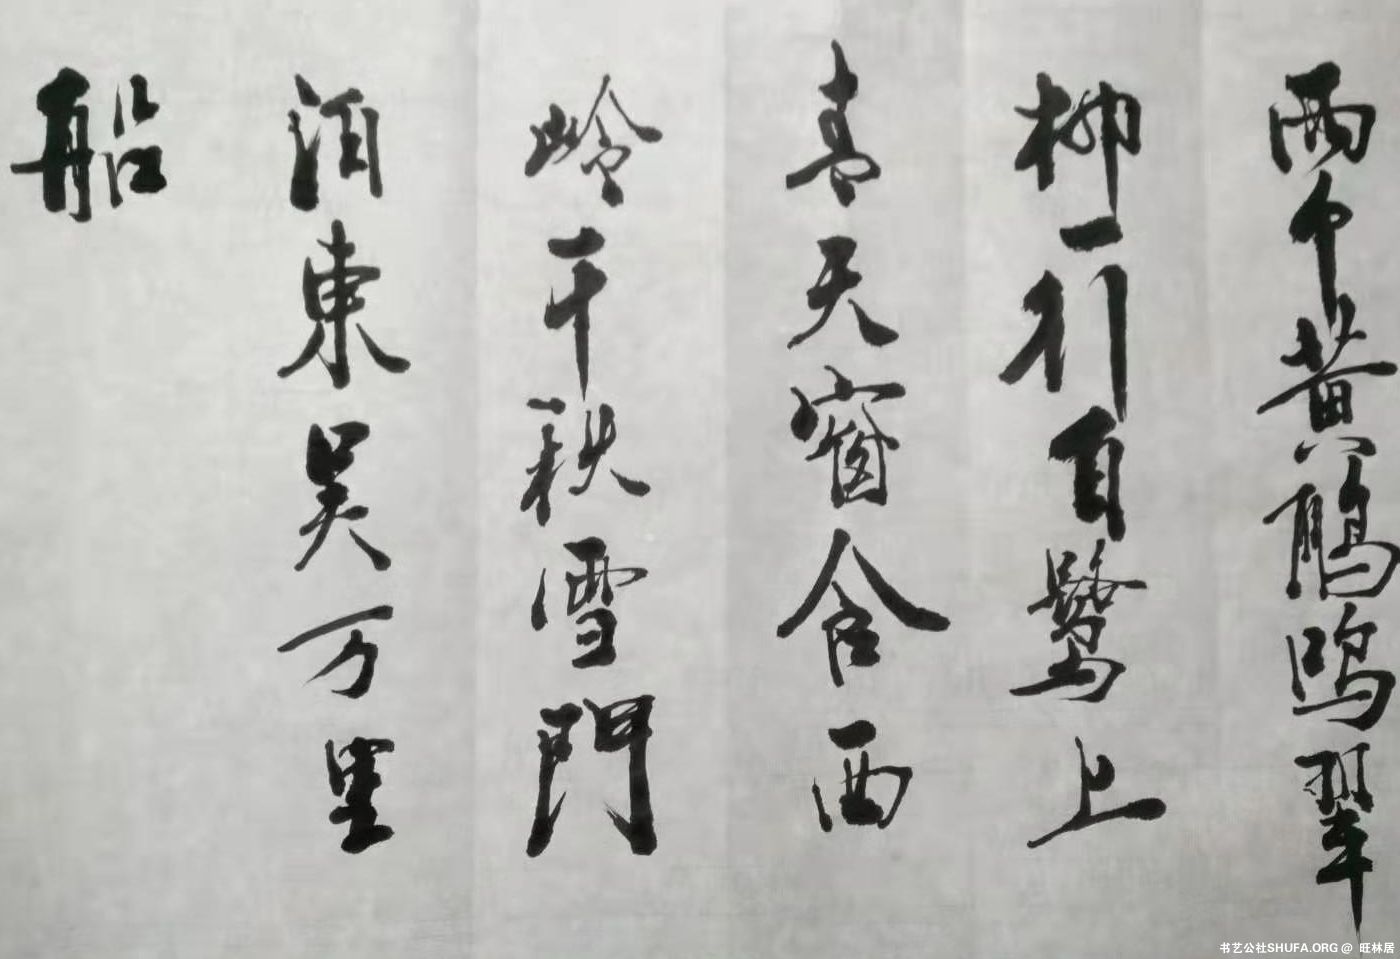 兩个黃鸝鳴翠
柳一行白鷺上
青天窗含西
岭千秋雪門
泊東吴万里
船
书艺公社SHUFA.ORG @ 旺林居